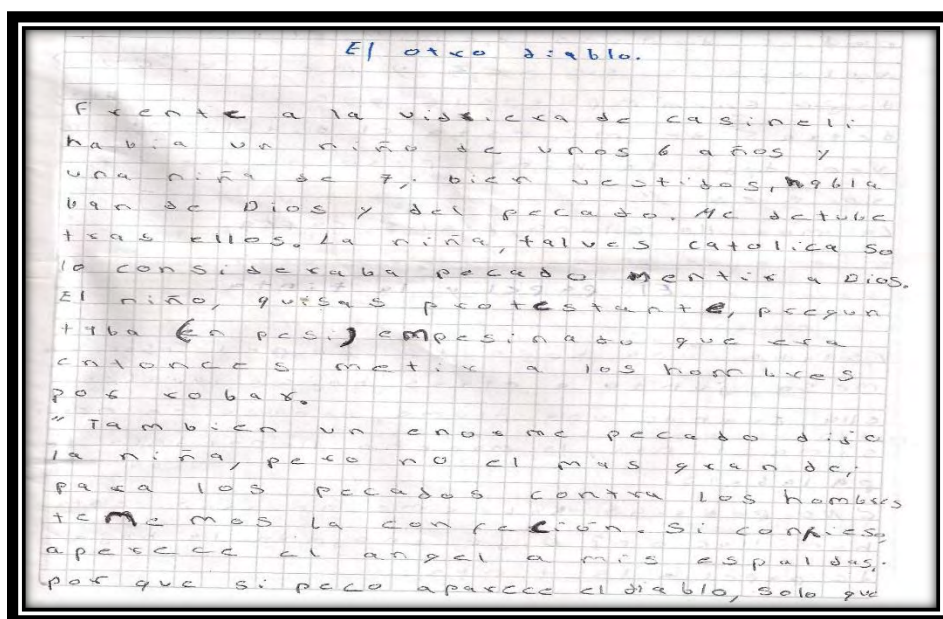 El otro diablo.
Frente a la vidriera de casineli
habia un niño de unos 6 años y
una niña de 7, bien vestidos, habla
ban de Dios y del pecado. Me detube
tras ellos. La niña, talves catolica so
lo consideraba pecado mentir a Dios.
El niño, quisas protestante, pregun
taba (en pesi) empesinado que era
entonces metir a los hombres
por robar.
" Tambien un enorme pecado dijo
la niña, pero no el mas grande,
para los pecados contra los hombres
tememos la confeción. Si confieso,
aperece el angel a mis espaldas,
por que si peco aparece el diablo, solo que